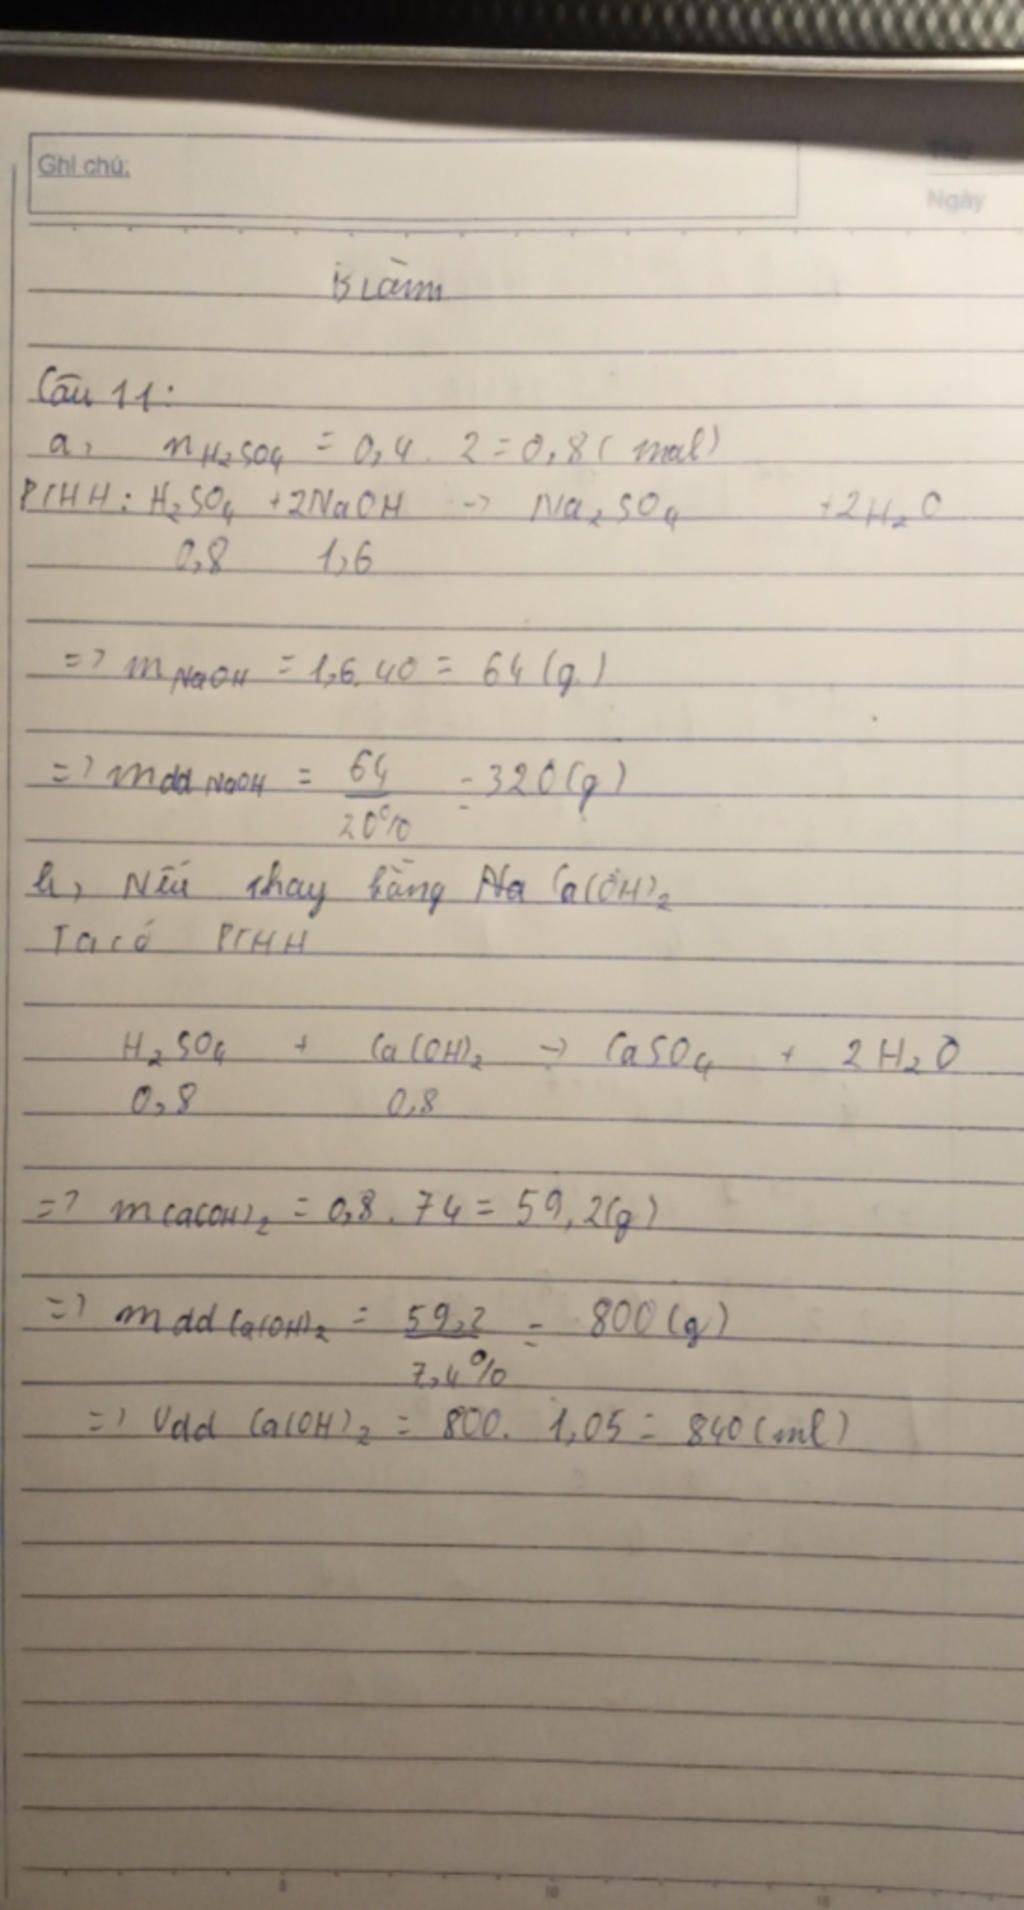 Ghi chú:
Thứ
Ngày
B Làm
Câu 11:
a, nH₂SO₄ = 0,4 . 2 = 0,8 (mol)
PTHH: H₂SO₄ + 2NaOH -> Na₂SO₄ + 2H₂O
0,8 1,6
=> mNaOH = 1,6.40 = 64 (g)
=> mdd NaOH = 64/20% = 320 (g)
b, Nếu thay bằng Ca(OH)₂
Ta có PTHH
H₂SO₄ + Ca(OH)₂ -> CaSO₄ + 2H₂O
0,8 0,8
=> mCa(OH)₂ = 0,8 . 74 = 59,2(g)
=> mdd Ca(OH)₂ = 59,2/7,4% = 800 (g)
=> Vdd Ca(OH)₂ = 800. 1,05 = 840 (ml)
5 10 15